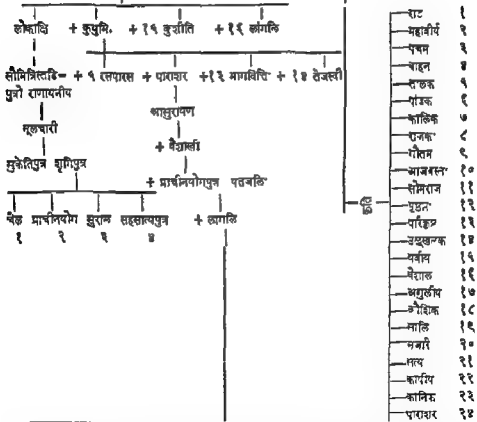 लोकाक्षि + कुथुमि. + १५ कुशीति + १६ लांगलि
सौमित्रिस्तडि– + ५ रसपारस + पाराशर +१३ भागवित्ति + १४ तेजस्वी
पुत्रो राणायनीय
आसुरायण
मूलचारी
+ वैशाली
सुकेतिपुत्र शृगिपुत्र
+ प्राचीनयोगपुत्र पतजलि
चैल प्राचीनयोग सुराल सहसात्यपुत्र + लागलि
१ २ ३ ४
राट १
महावीर्य २
पचम ३
वाहन ४
तालक ५
पांडक ६
कालिक ७
राजक ८
गौतम ९
आजवस्त १०
सोमराज ११
पृष्ठत १२
परिकृष्ट १३
उलूखलक १४
यवीय १५
वैशाल १६
अगुलीय १७
कौशिक १८
सालि १९
मजरि २०
सत्य २१
कापीय २२
कानिक २३
पाराशर २४
कृति